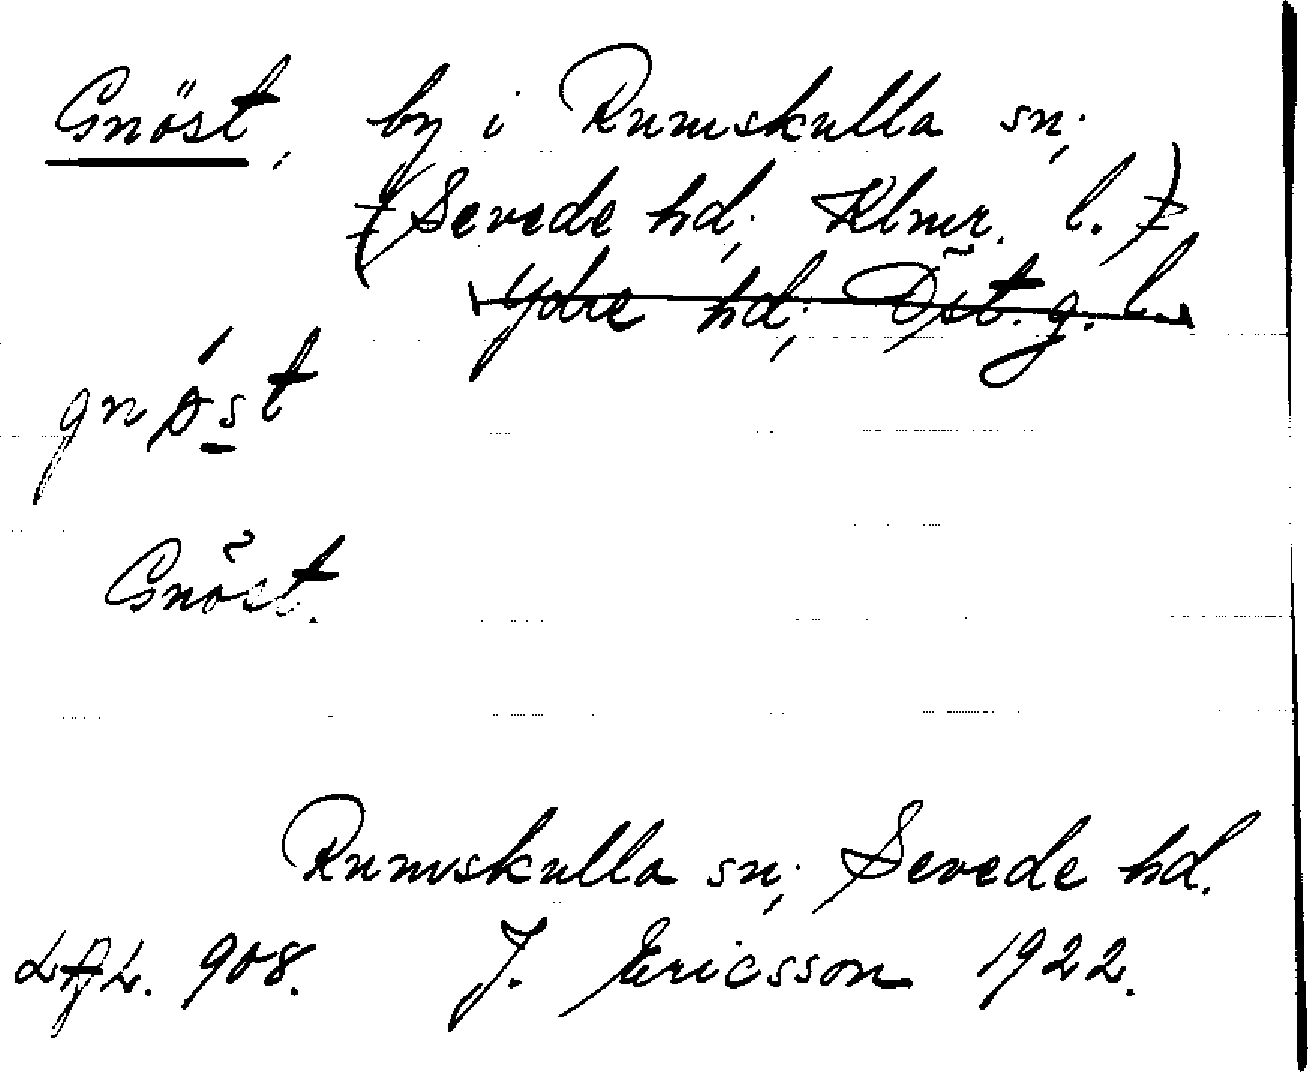 Gnöst, by i Rumskulla sn;
(Sevede hd; Klmr. l.)
Ydre hd; Öst.g.l.
Gnöst.
Rumskulla sn; Sevede hd.
908. J. Ericsson 1922.